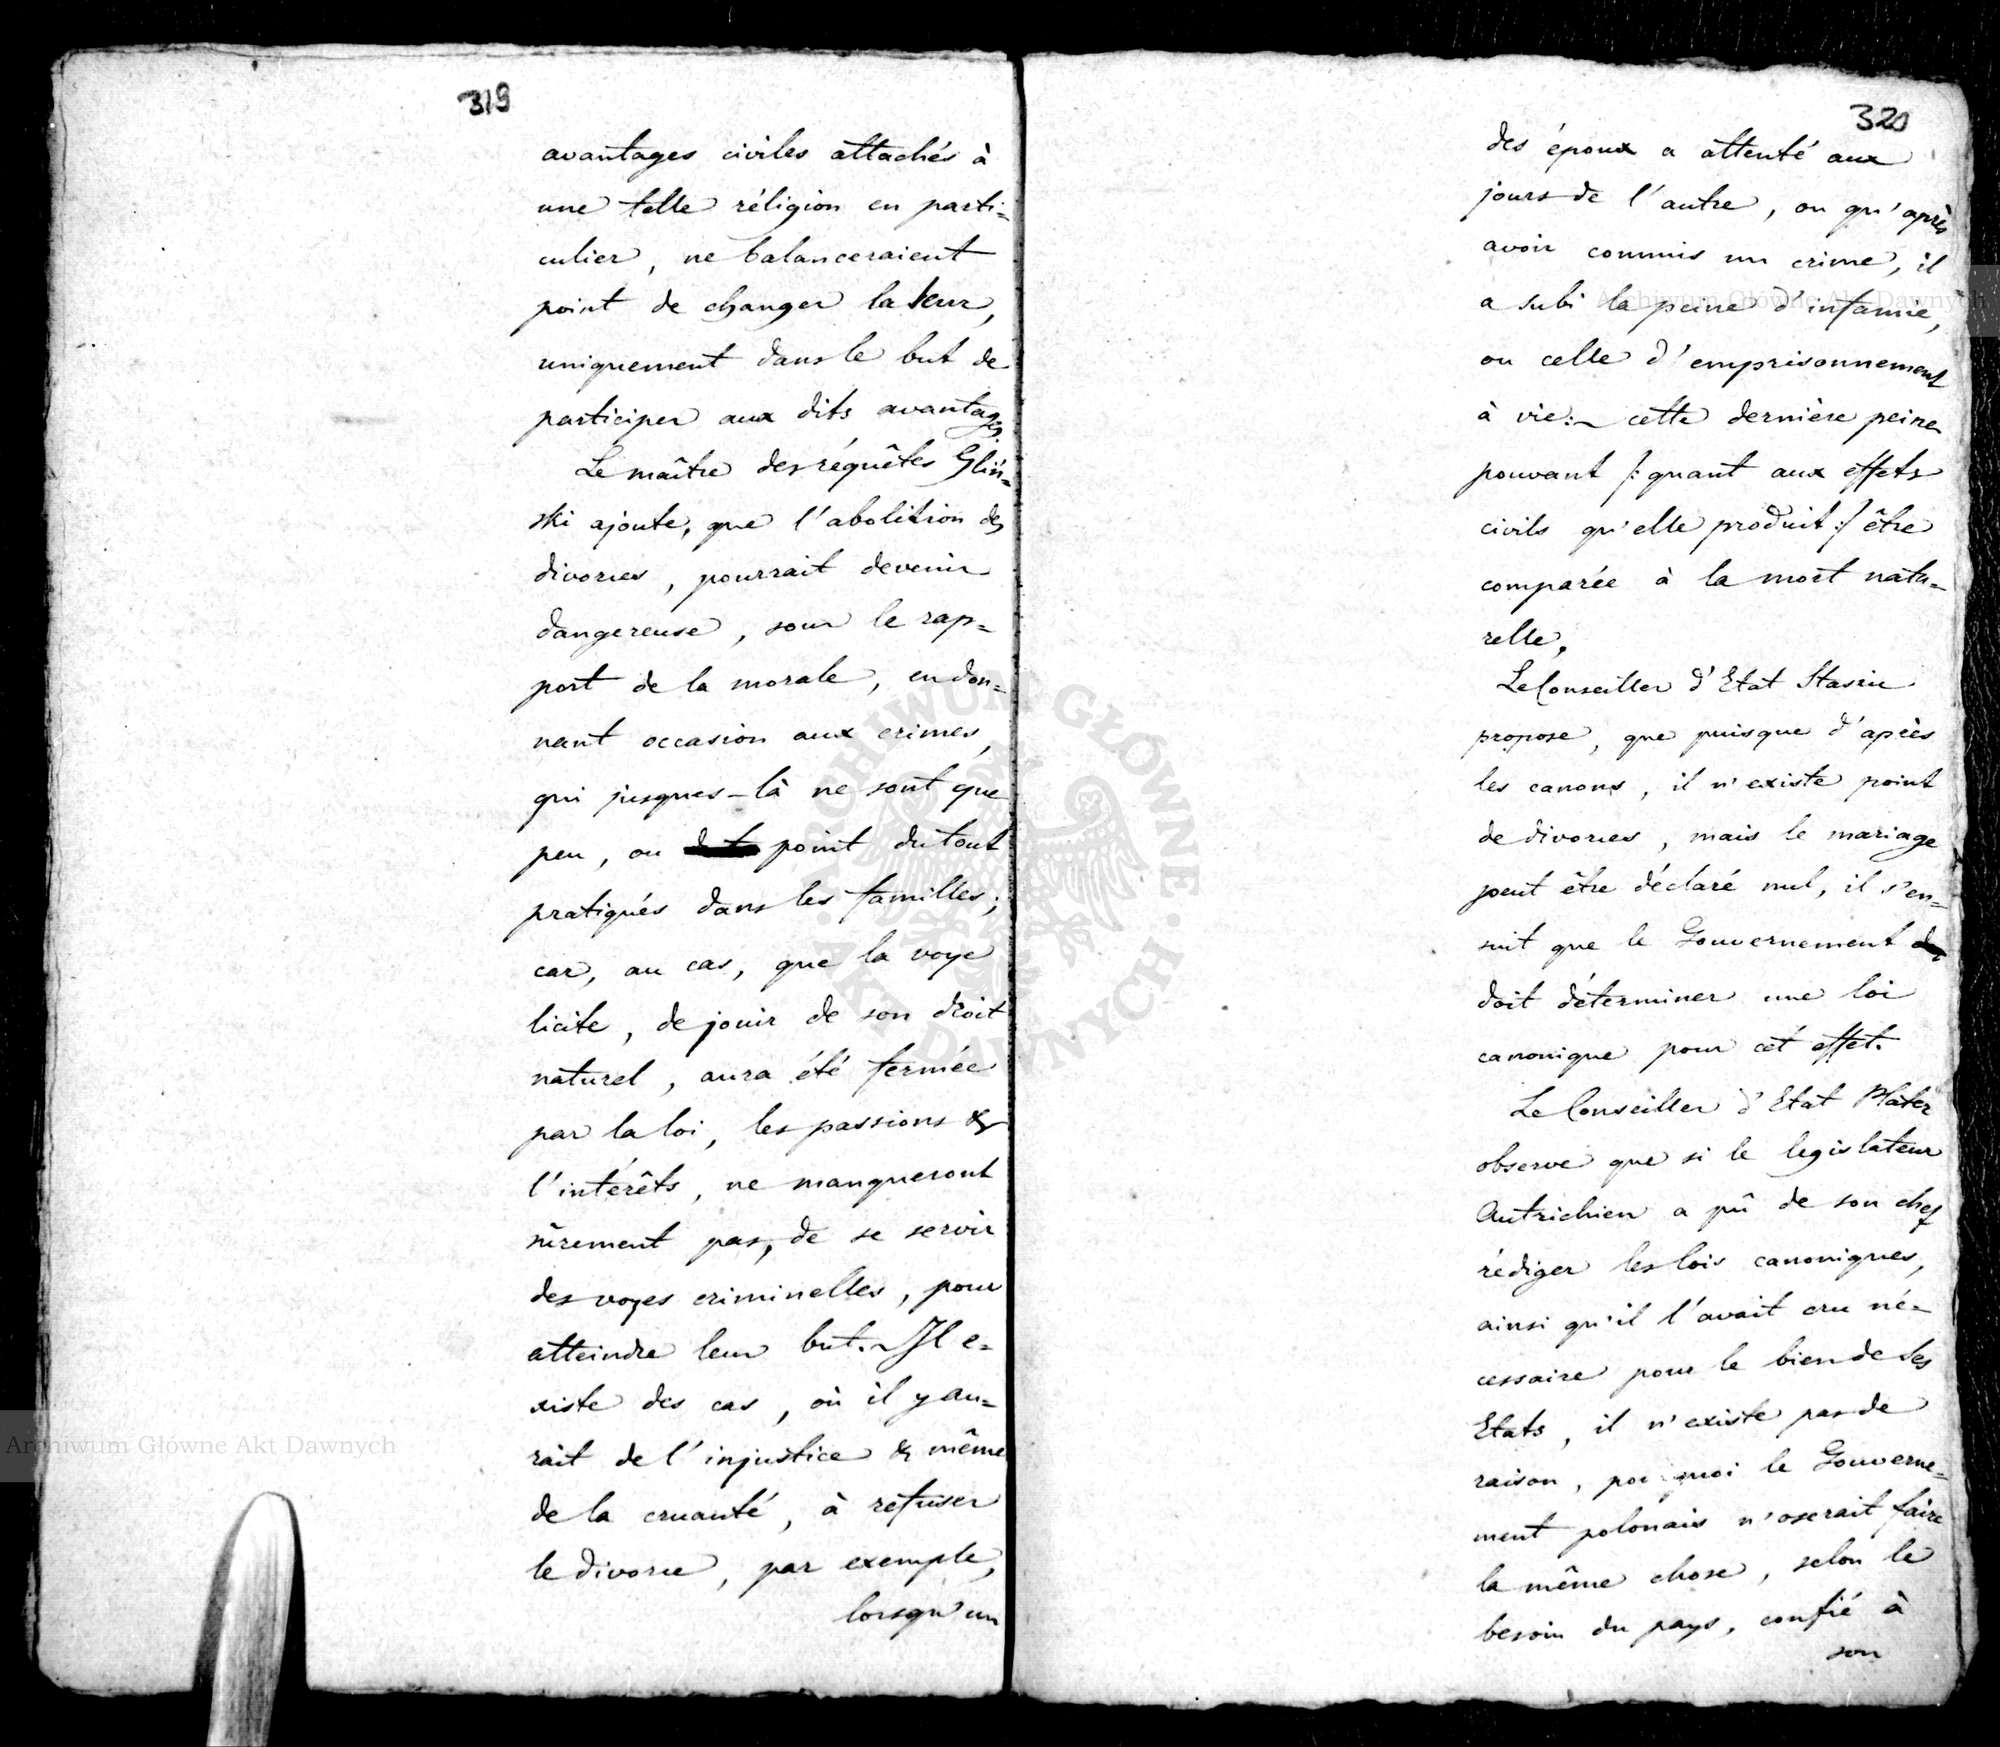 319
avantages civiles attachés à
une telle réligion en parti=
culier, ne balanceraient
point de changer la leur,
uniquement dans le but de
participer aux dits avantages.
Le maître des réquêtes Gliń=
ski ajoute, que l'abolition des
divorces, pourrait devenir
dangereuse, sous le rap=
port de la morale, en don=
nant occasion aux crimes,
qui jusques-là ne sont que
peu, ou point du tout
pratiqués dans les familles;
car, au cas, que la voye
licite, de jouir de son droit
naturel, aura été fermée
par la loi, les passions &
l'intérêts, ne manqueront
sûrement pas, de se servir
des voyes criminelles, pour
atteindre leur but. ~ Il e=
xiste des cas, où il y au=
rait de l'injustice & même
de la cruauté, à refuser
le divorce, par exemple,
lorsqu'un
320
des époux a attenté aux
jours de l'autre, ou qu'après
avoir commis un crime, il
a subi la peine d'infamie,
ou celle d'emprisonnement
à vie: ~ cette dernière peine
pouvant /: quant aux effets
civils qu'elle produit :/ être
comparée à la mort natu=
relle.
Le Conseiller d'Etat Stasic
propose, que puisque d'après
les canons, il n'existe point
de divorces, mais le mariage
peut être déclaré nul, il s'en=
suit que le Gouvernement
doit déterminer une loi
canonique pour cét effet.
Le Conseiller d'Etat Plater
observe que si le legislateur
Autrichien a pû de son chef
rédiger les lois canoniques,
ainsi qu'il l'avait cru né=
cessaire pour le bien de ses
Etats, il n'existe pas de
raison, pourquoi le Gouverne=
ment polonais n'oserait faire
la même chose, selon le
besoin du pays, confié à
son
Archiwum Główne Akt Dawnych
Archiwum Główne Akt Dawnych
ARCHIWUM GŁÓWNE · AKT DAWNYCH ·